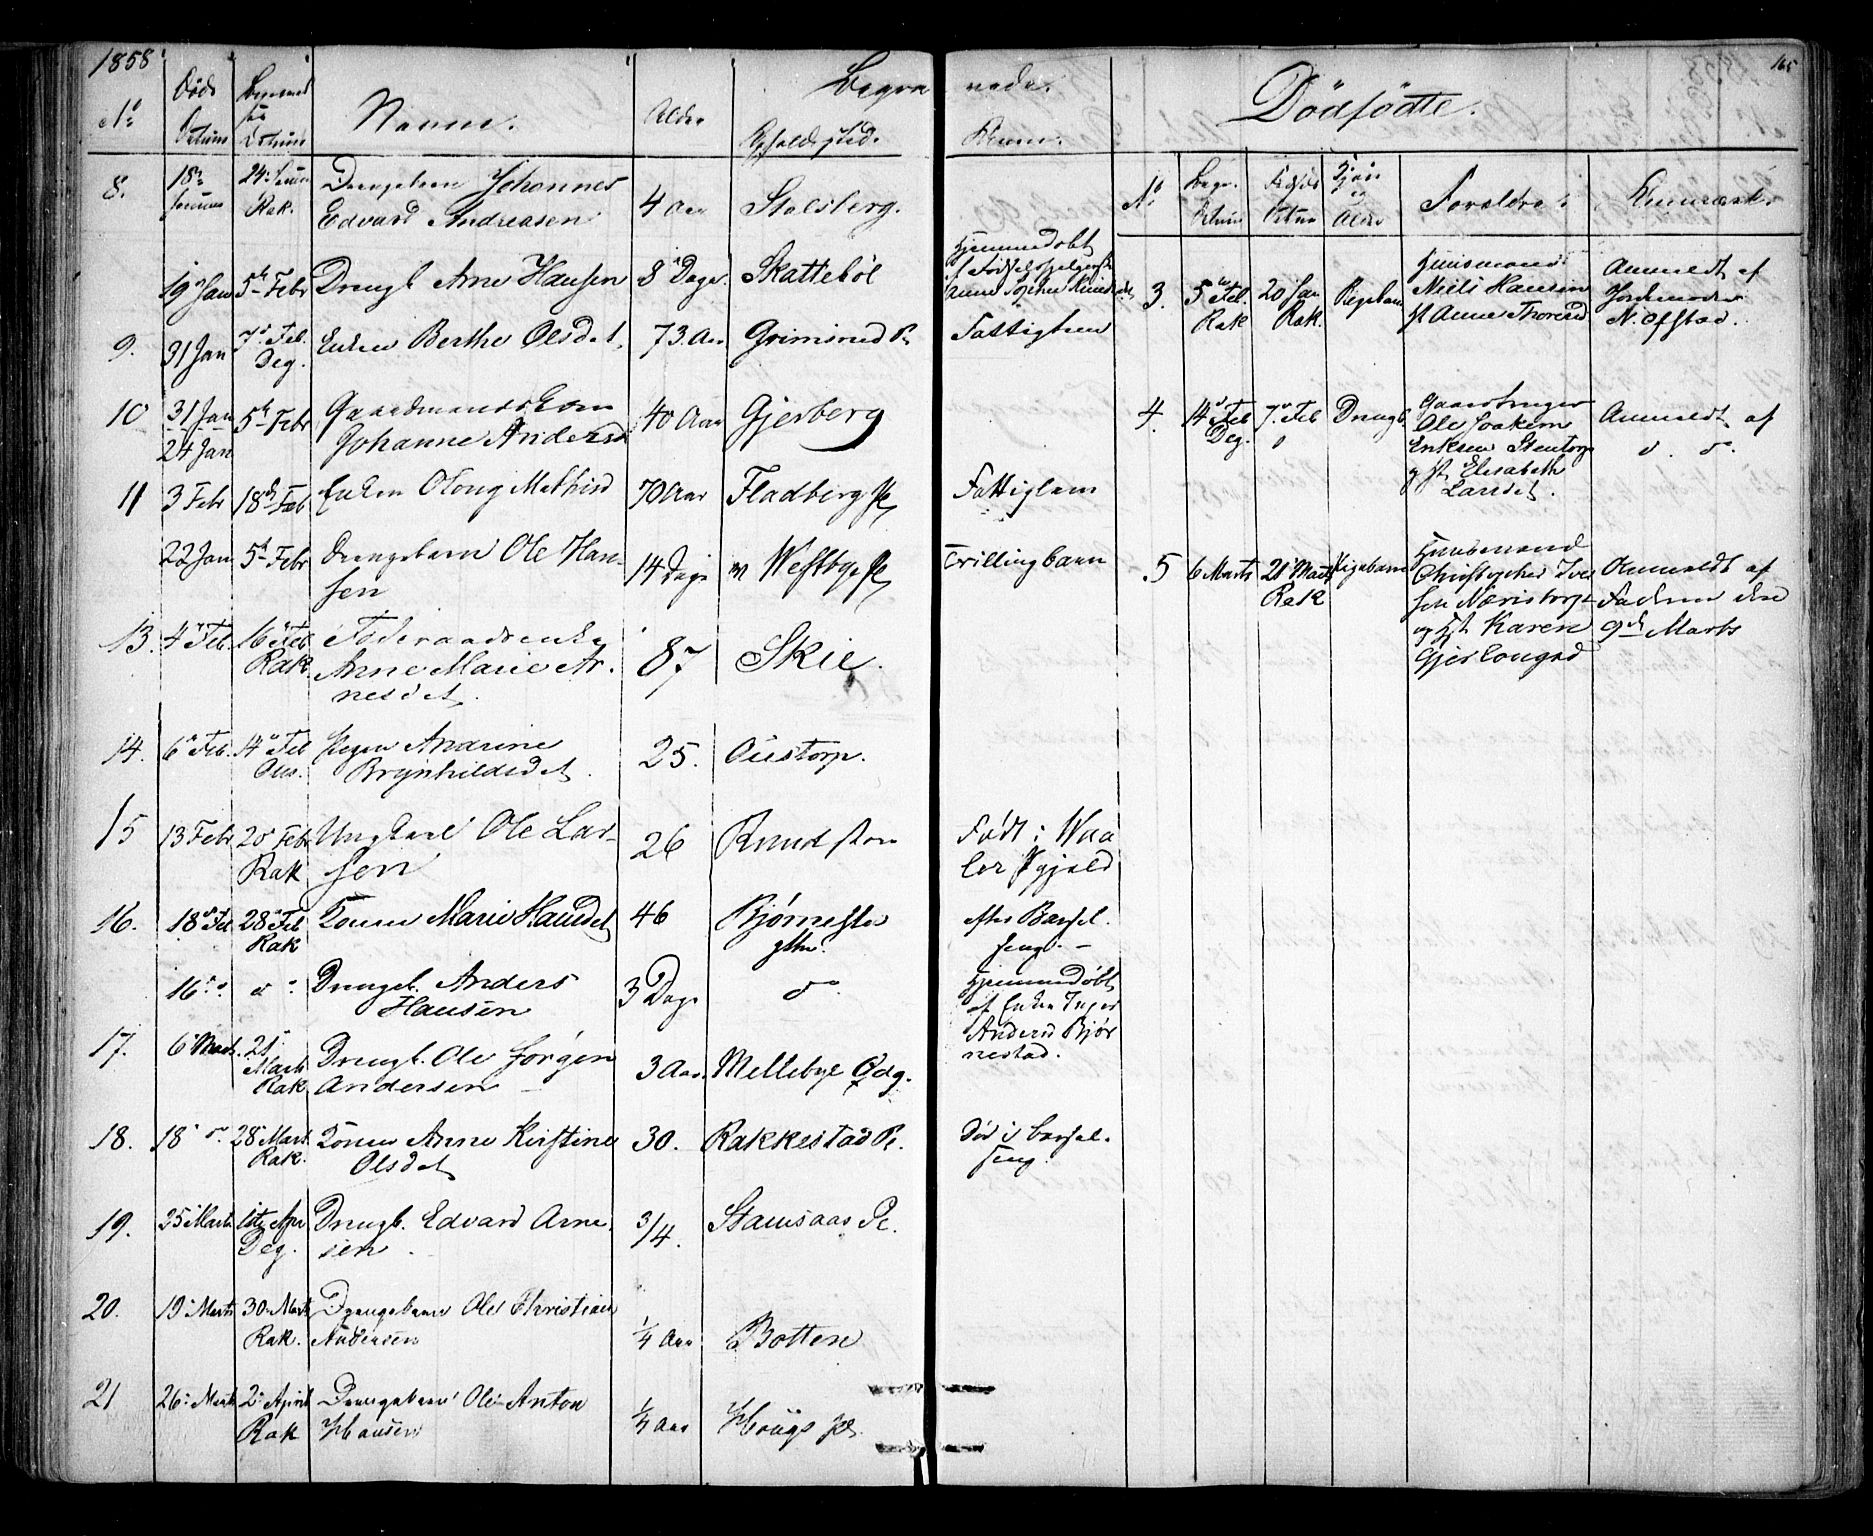 1858
165
Begravede.
Dødfødte.
No Døds Datum Begravelses Datum Navne. Alder Opholdssted. Anm.
8. 18de Januar 24 Januar Rak. Drengebarn Johannes
Edvard Andreasen 4 Aar Stolsberg.
19 Jan 5te Febr Drengb. Arne Hansen 8 Dage Skattebøl Hjemmedøbt
9. 31 Jan 7de Feb. Deg. Enken Berthe Olsdat. 73 Aar Grimsrud Pl Fattiglem
10 31 Jan 5te Febr Gaardmandskone
24 Jan Johanne Andersd 40 Aar Gjerberg
11 3 Febr 18de Feb Enken Oloug Mathisd 70 Aar Fladberg Pl Fattiglem
22 Jan 5te Febr Drengebarn Ole Han-
sen 14 Dage Westbye Pl Trillingbarn
13. 4de Feb. 16de Feb Rak Føderaadsenke
Anne Marie Ar-
nesdat. 87 Skie.
14. 6te Feb. 14de Feb Ous. Pigen Andrine
Brynhildsdat. 25. Oustorp.
15 13 Febr 20 Febr Rak Ungkarl Ole Lar-
sen 26 Knudston Født i Waa
ler Pgjeld
16. 18de Feb 28de Feb Rak Konen Marie Hansdat 46 Bjørnestad efter Barsel-
seng. -
16 do do Drengeb. Anders
Hansen 3 Dage do Hjemmedøbt
af Enken Inger
Andersd Bjør
nestad.
17. 6 Marts. 21 Marts Rak Drengb. Ole Jørgen
Andersen 3 Aar Mellebye Ødg.
18. 18 do. 28 Marts Rak. Konen Anne Kirstine
Olsdat 30. Rakkestad Pl. Død i Barsel-
seng.
19. 25 Marts 1ste Apr Deg. Drengb. Edvard Arne
sen. 3/4. Stamsaas Pl.
20. 19 Marts 30 Marts Rak. Drengebarn Ole Christian
Andersen 1/4 Aar Botten
21 26 Marts 2 April Rak Drengebarn Ole Anton
Hansen 1/4 Aar Hougs Pl
No Begr. Datum Fødsels Datum Kjøn og Alder Forældre Anmærk.
3. 5te Feb. Rak 20 Jan Rak. Pigebarn Huusmand
Niels Hansen
H Anne Thoresd Anmeldt af
Jordemoder
N. Ofstad.
4. 14de Feb Deg. 7de Feb Drengb. Gaardbruger
Ole Joakim
Eriksen Stentorp
og H. Elisabeth
Larsdat. Anmeldt af
do. do.
5 6 Marts 21 Marts Rak Pigebarn Huusmand
Christopher Iver
sen Næristorp
og H Karen
Gjerlougsd Anmeldt af
Faderen den
9de Marts